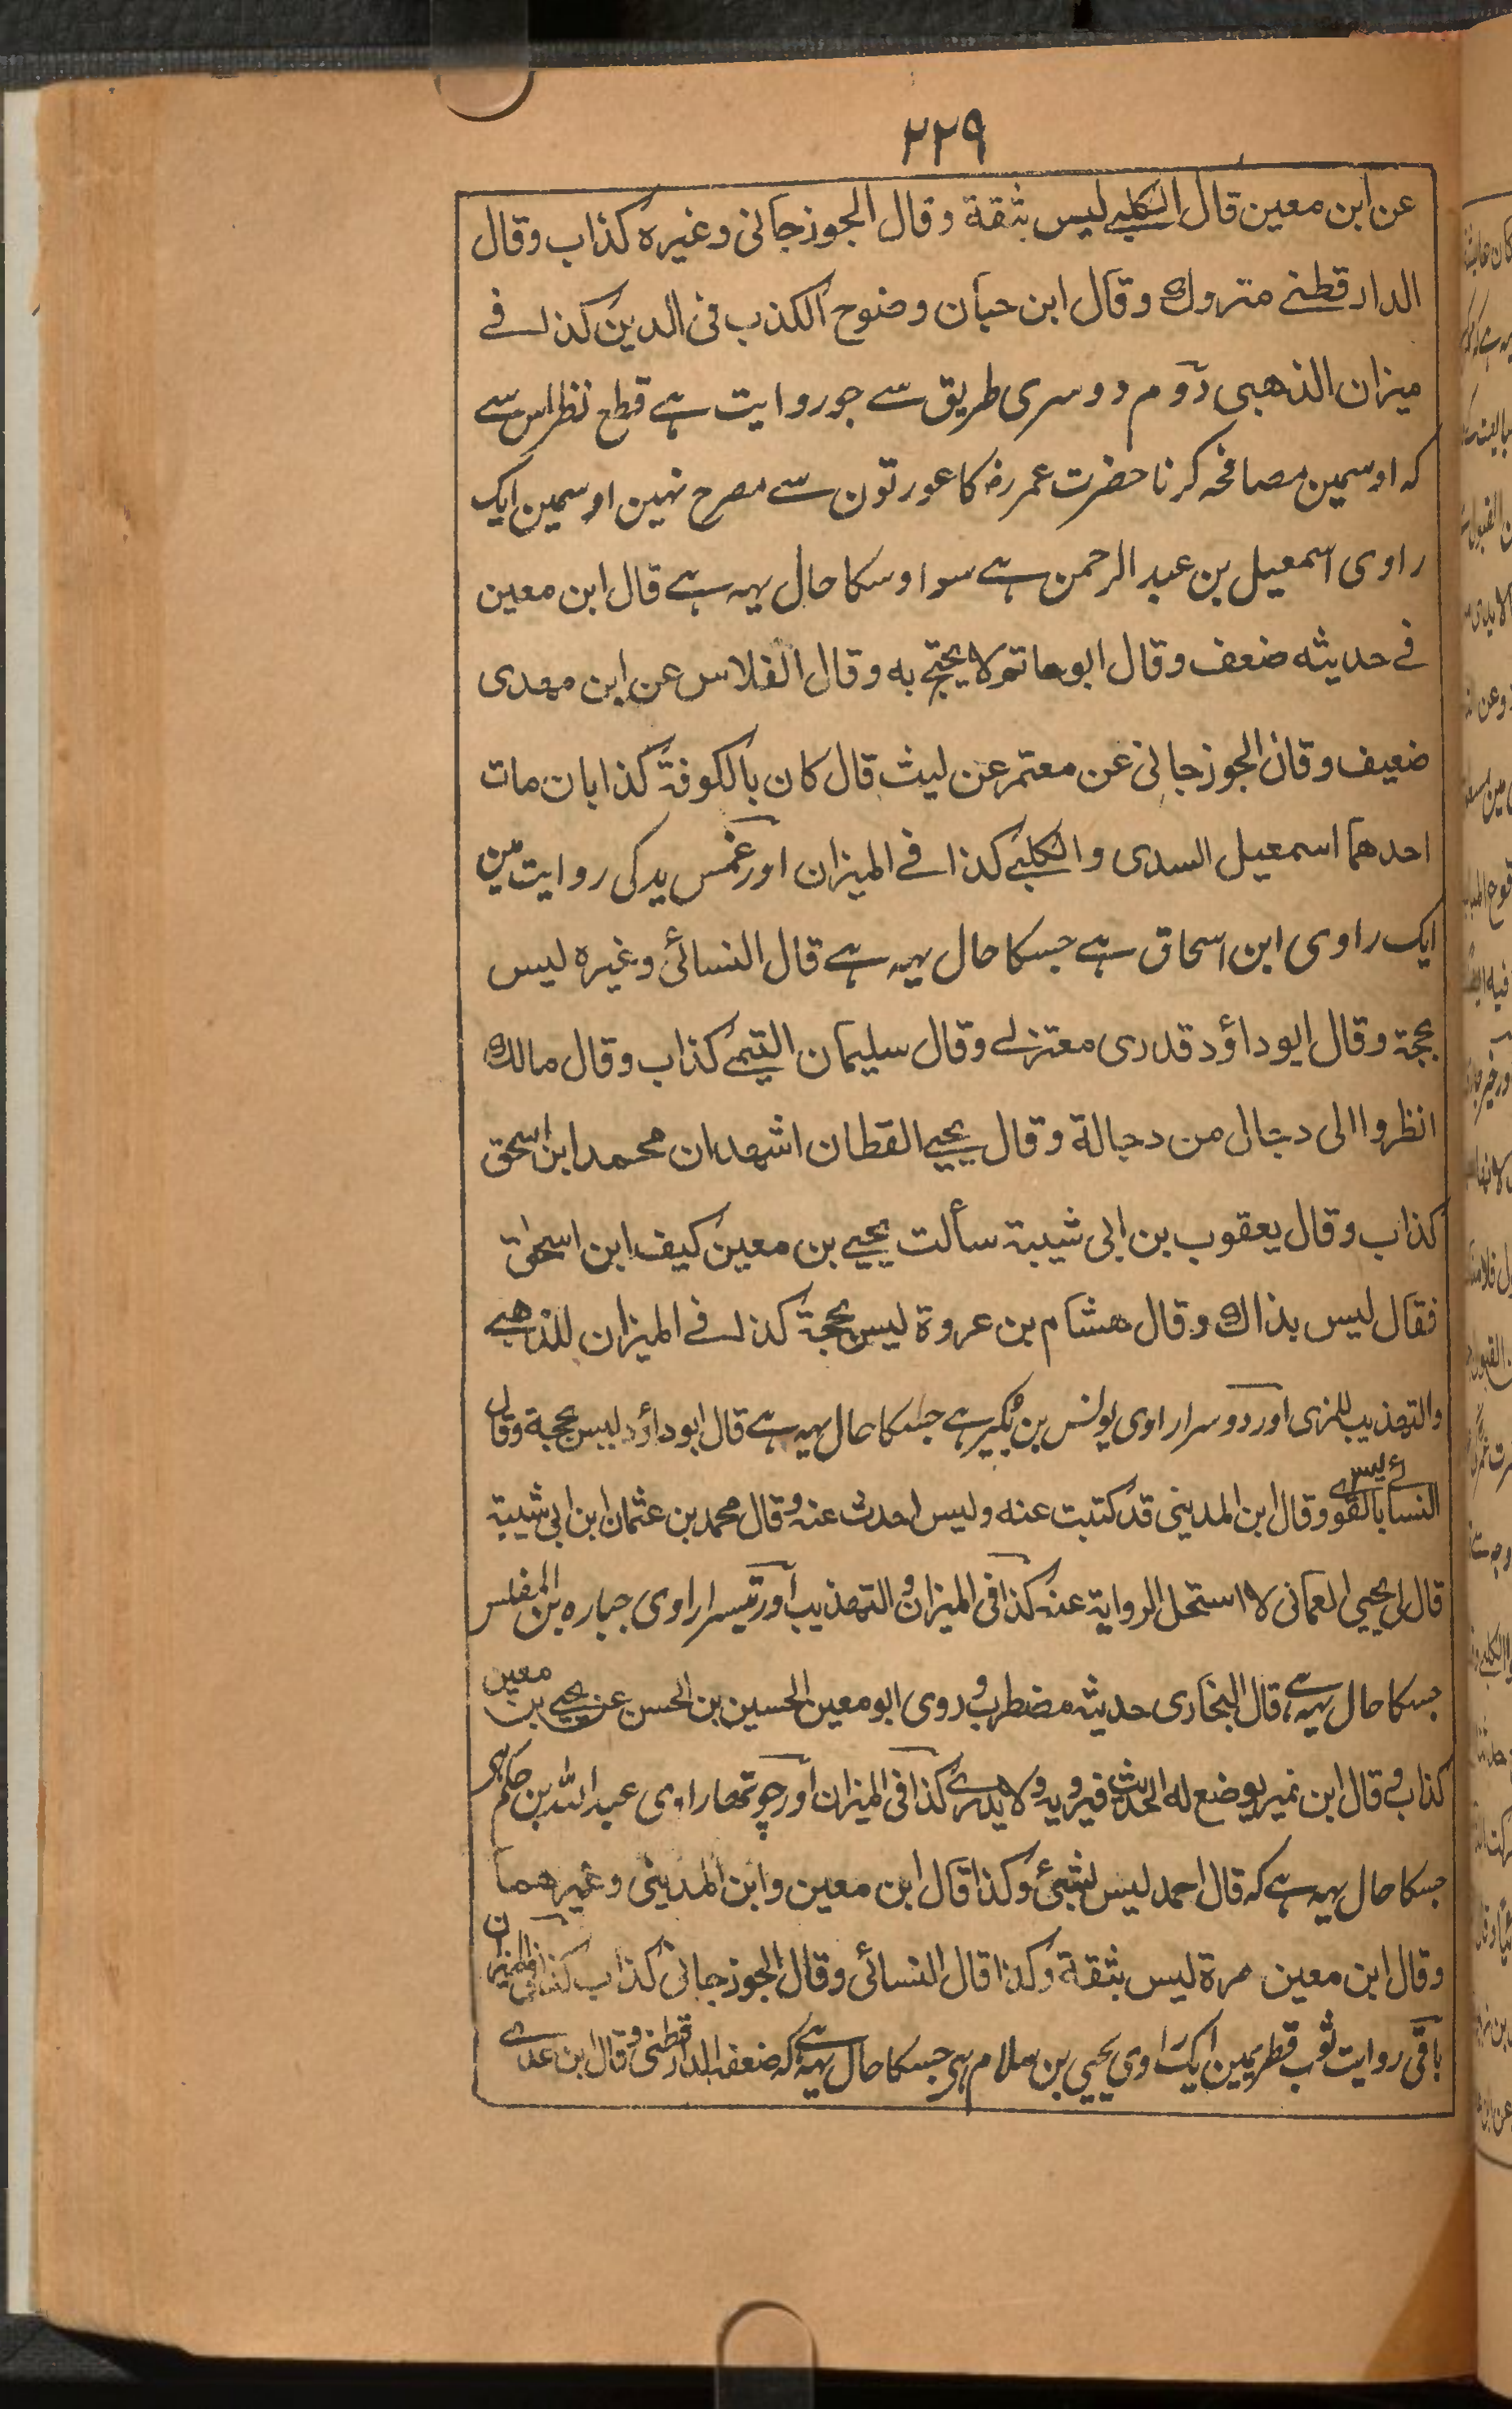 ۲۲۹
عن ابن معين قال الكلبے ليس بثقة وقال الجوزجانی وغيره كذاب وقال
الدارقطنے متروك وقال ابن حبان وضوح الكذب فی الدين كذا فے
ميزان الذهبی دوم دوسری طریق سے جو روایت ہے قطع نظر اس سے
کہ اوسمین مصافحہ کرنا حضرت عمر رض کا عورتون سے مصرح نہین اوسمین ایک
راوی اسمعیل بن عبد الرحمن ہے سو اوسکا حال یہہ ہے قال ابن معين
فے حديثه ضعف وقال ابو حاتم لا يحتج به وقال الفلاس عن ابن مهدی
ضعيف وقال الجوزجانی عن معتمر عن ليث قال كان بالكوفة كذابان مات
احدهما اسمعيل السدی والكلبے كذا فے الميزان اور غمس ید کی روایت مین
ایک راوی ابن اسحاق ہے جسکا حال یہہ ہے قال النسائی وغيره ليس
بحجة وقال ابو داؤد قدری معتزلے وقال سليمان التيمے كذاب وقال مالك
انظروا الى دجال من دجالة وقال يحيے القطان اشهد ان محمد ابن اسحق
كذاب وقال يعقوب بن ابی شيبة سألت يحيے بن معين كيف ابن اسحق
فقال ليس بذاك وقال هشام بن عروة ليس بحجة كذا فے الميزان للذهبے
والتهذيب للمزی اور دوسرا راوی یونس بن بکیر ہے جسکا حال یہہ ہے قال ابو داؤد ليس بحجة وقال
النسائے ليس بالقوے وقال ابن المدينی قد كتبت عنه وليس احدث عنه وقال محمد بن عثمان ابن ابی شيبة
قال لی يحيی العمانی لا استحل الرواية عنه كذا فی الميزان والتهذيب اور تیسرا راوی جباره بن المفلس
جسکا حال یہہ ہے قال البخاری حديثه مضطرب وروی ابو معين الحسين بن الحسن عن يحيے بن معين
كذاب وقال ابن نمير يوضع له الحديث فيرويه ولا يدرے كذا فی الميزان اور چوتھا راوی عبد اللہ بن حکم ہی
جسکا حال یہہ ہے کہ قال احمد ليس بشیئ وكذا قال ابن معين وابن المدينی وغيرهما
وقال ابن معين مرة ليس بثقة وكذا قال النسائی وقال الجوزجانی كذاب كذا فی الميزان
باقی روایت ثوب قطریمین ایک راوی یحیی بن سلام ہی جسکا حال یہہ ہے کہ ضعفه الدارقطنی وقال ابن عدے